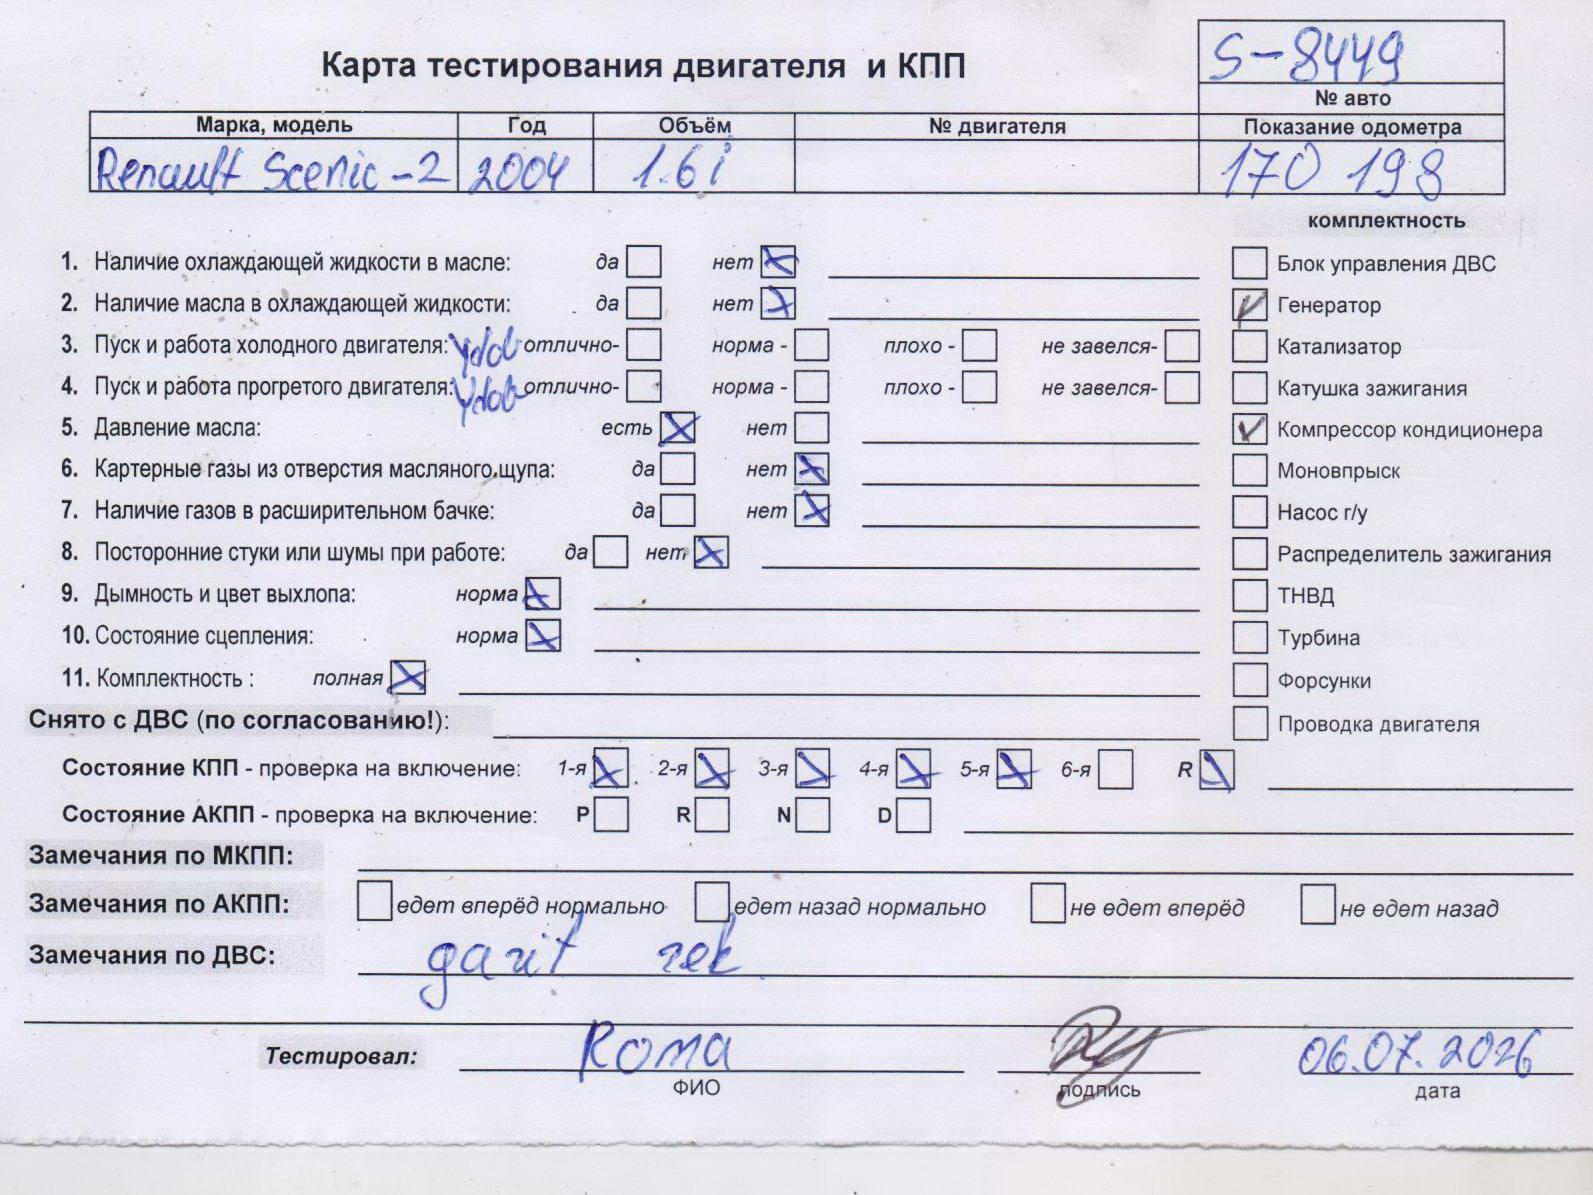 S-8449
Карта тестирования двигателя и КПП
№ авто
Марка, модель Год Объём № двигателя Показание одометра
Renault Scenic-2 2004 1.6i 170 198
комплектность
1. Наличие охлаждающей жидкости в масле: да нет Блок управления ДВС
2. Наличие масла в охлаждающей жидкости: да нет Генератор
3. Пуск и работа холодного двигателя: удов отлично- норма - плохо - не завелся- Катализатор
4. Пуск и работа прогретого двигателя: удов отлично- норма - плохо - не завелся- Катушка зажигания
5. Давление масла: есть нет Компрессор кондиционера
6. Картерные газы из отверстия масляного щупа: да нет Моновпрыск
7. Наличие газов в расширительном бачке: да нет Насос г/у
8. Посторонние стуки или шумы при работе: да нет Распределитель зажигания
9. Дымность и цвет выхлопа: норма ТНВД
10. Состояние сцепления: норма Турбина
11. Комплектность : полная Форсунки
Снято с ДВС (по согласованию!): Проводка двигателя
Состояние КПП - проверка на включение: 1-я 2-я 3-я 4-я 5-я 6-я R
Состояние АКПП - проверка на включение: P R N D
Замечания по МКПП:
Замечания по АКПП: едет вперёд нормально едет назад нормально не едет вперёд не едет назад
Замечания по ДВС:
Тестировал: Roma 06.07.2026
ФИО подпись дата